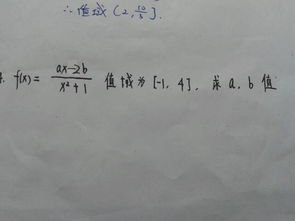 ∴值域 (2, 10/3].
f(x) = (ax-2b)/(x²+1) 值域为 [-1, 4]. 求 a, b 值